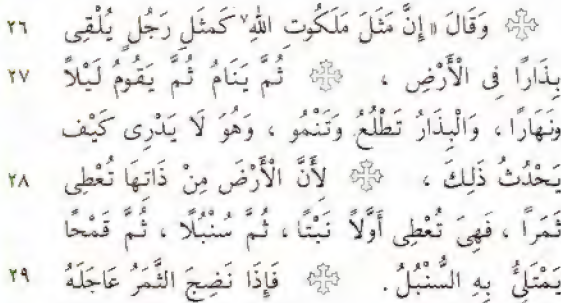 ٢٦ وَقَالَ «إِنَّ مَثَلَ مَلَكُوتِ اللهِ٧ كَمَثَلِ رَجُلٍ يُلْقِى
٢٧ بِذَارًا فِى الْأَرْضِ ، ثُمَّ يَنَامُ ثُمَّ يَقُومُ لَيْلاً
وَنَهَارًا ، وَالْبِذَارُ تَطْلُعُ وَتَنْمُو ، وَهُوَ لَا يَدْرِى كَيْفَ
٢٨ يَحْدُثُ ذَلِكَ ، لِأَنَّ الْأَرْضَ مِنْ ذَاتِهَا تُعْطِى
ثَمَرًا ، فَهِىَ تُعْطِى أَوَّلاً نَبْتًا ، ثُمَّ سُنْبُلًا ، ثُمَّ قَمْحًا
٢٩ يَمْتَلِئُ بِهِ السُّنْبُلُ . فَإِذَا نَضِجَ الثَّمَرُ عَاجَلَهُ